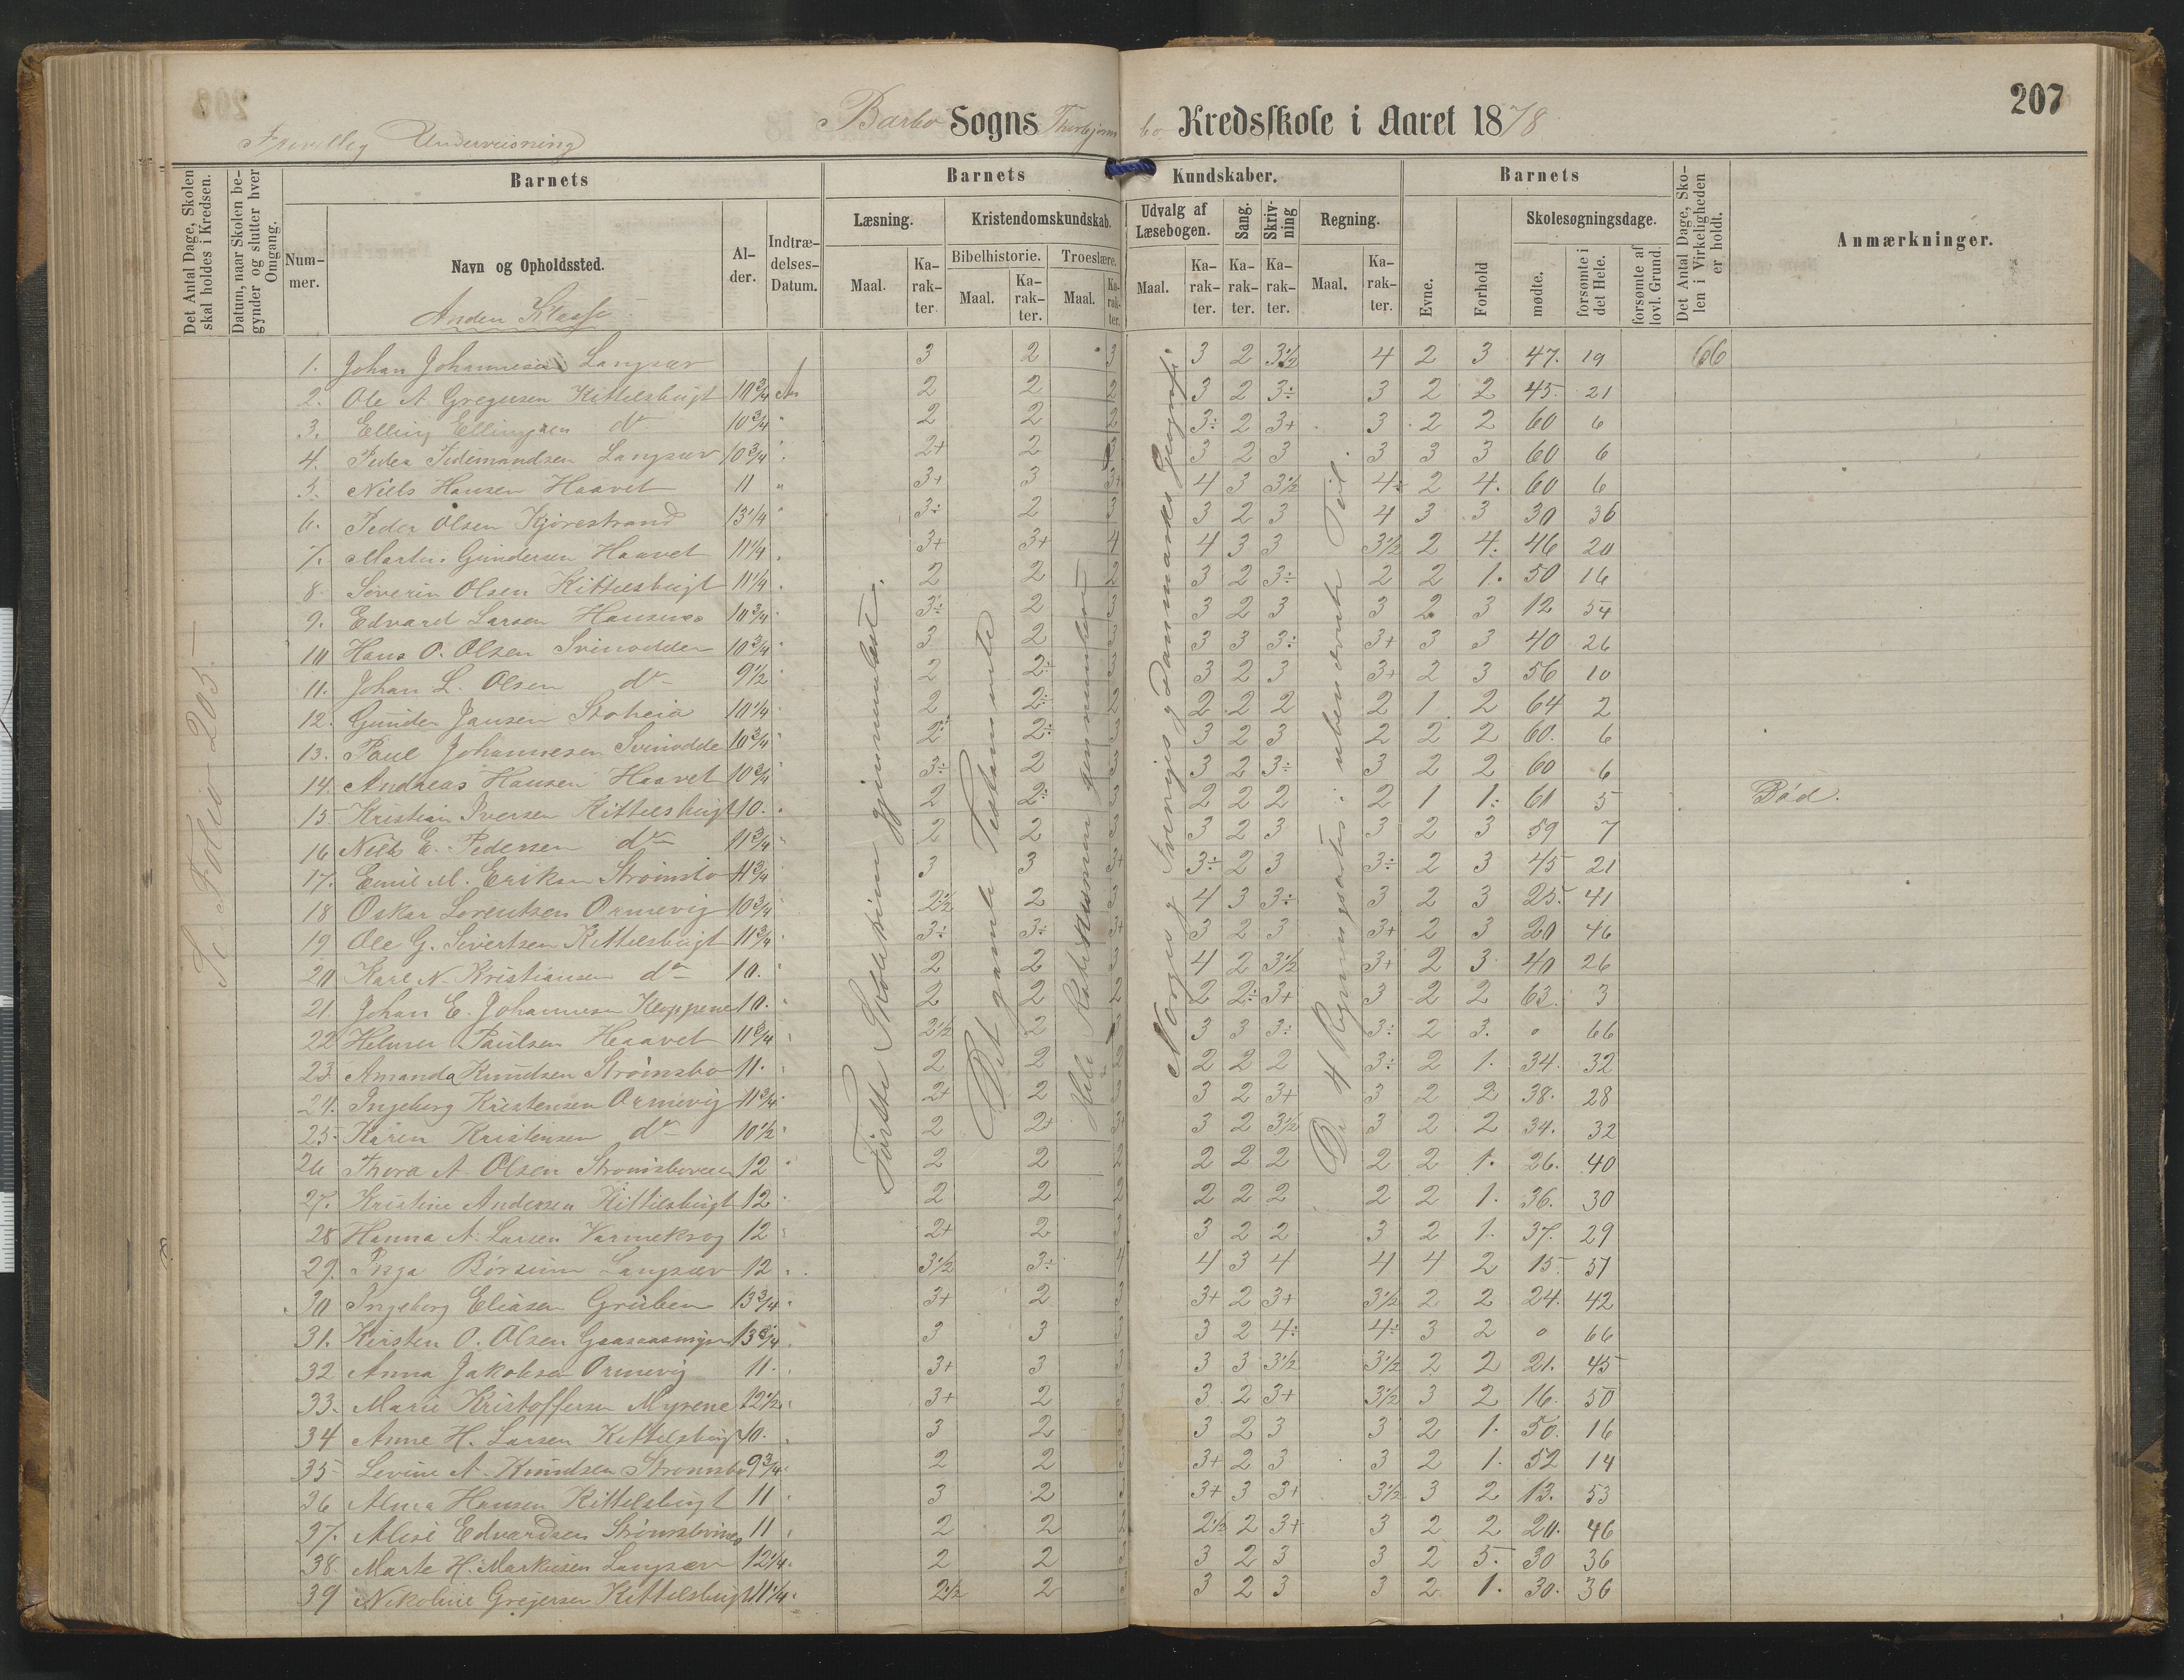 207
Barbo Sogns Thorbjørns bo Kredsskole i Aaret 1878
Frivillig Underviisning
Det Antal Dage, Skolen skal holdes i Kredsen.
Datum, naar Skolen begynder og slutter hver Omgang.
Barnets
Nummer.
Navn og Opholdssted.
Alder.
Indtrædelses-Datum.
Barnets Kundskaber.
Læsning.
Maal.
Karakter.
Kristendomskundskab.
Bibelhistorie.
Maal.
Karakter.
Troeslære.
Maal.
Karakter.
Udvalg af Læsebogen.
Maal.
Karakter.
Sang.
Karakter.
Skrivning
Karakter.
Regning.
Maal.
Karakter.
Barnets
Evne.
Forhold
Skolesøgningsdage.
mødte.
forsømte i det Hele.
forsømte af lovl. Grund.
Det Antal Dage, Skolen i Virkeligheden er holdt.
Anmærkninger.
Anden Klasse
Se Folio 205.
Første Skoletrin gjennemlæst.
Det gamle Testamente
Hele Katekismen gjennemlært
Norges, Sverrigs og Danmarks Geografi.
De 4 Regningsarter i ubenævnte Tal.
1. Johan Johannesen Langsæv 3 2 3 3 2 3 1/2 4 2 3 47. 19 66
2. Ole A Gregersen Kittelsbugt 10 3/4 2 2 2 3 2 3÷ 3 2 2 45. 21
3. Elling Ellingsen do 10 3/4 " 2 2 2 3÷ 2 3+ 3 2 2 60 6
4. Peder Tidemandsen Langsæv 10 3/4 " 2+ 2 3 3 2 3 3 3 3 60 6
5. Niels Hansen Haavet 11 " 3+ 3 3+ 4 3 3 1/2 4÷ 2 4. 60 6
6. Peder Olsen Kjørestrand 13 1/4 " 3÷ 2 3 3 2 3 4 3 3 30 36
7. Martin Gundersen Haavet 11 1/4 " 3+ 3+ 4 4 3 3 3 1/2 2 4. 46 20
8. Severin Olsen Kittelsbugt 11 1/4 " 2 2 2 3 2 3÷ 2 2 1. 50 16
9. Edvard Larsen Hausnes 10 3/4 " 3÷ 2 3 3 2 3 3 2 3 12 54
10 Hans O. Olsen Svinodden 10 3/4 " 3 2 3 3 3 3÷ 3+ 3 3 40 26
11. Johan L. Olsen do 9 1/2 " 2 2÷ 3 3 2 3 3+ 2 3 56 10
12. Gunder Jansen Stoheia 10 1/4 " 2 2÷ 2 2 2 2 2 1 2 64 2
13. Paul Johannesen Svinodde 10 3/4 " 2÷ 2÷ 3 3 2 3 2 2 2 60. 6
14. Andreas Hansen Haavet 10 3/4 " 3÷ 2 3 3 2 3÷ 3 2 2 60 6
15 Kristian Iversen Kittelsbugt 10. " 2 2÷ 2 2 2 2 2 1 1÷ 61 5 Død.
16 Niels E. Pedersen do 11 3/4 " 2 2 3 3 2 3 3 2 3 59 7
17. Emil M. Eriksen Strømsbo 11 3/4 " 3 3 3+ 3÷ 2 3 3÷ 2 3 45 21
18 Oskar Lorentsen Ormevig 10 3/4 " 2 1/2 2 3 4 3 3÷ 3 2 3 25. 41
19 Ole G. Sivertsen Kittelsbugt 11 3/4 " 3÷ 3÷ 3+ 3 2 3 3+ 2 3 20 46
20 Karl N. Kristiansen do 10. " 2 2 3 4 2 3 1/2 3+ 2 3 40 26
21. Johan E. Johannesen Kloppene 10. " 2 2 2 2 2÷ 3+ 3 2 2 63. 3
22 Helmer Paulsen Haavet 11 3/4 " 2 1/2 2 3 3 3 3÷ 3÷ 2 3. 0 66
23. Amanda Knudsen Strømsbo 11. " 2 2 2 2 2 2 3÷ 2 1. 34. 32
24. Ingeborg Kristensen Ormevig 11 3/4 " 2+ 2 3 3 2 3+ 3 2 2 38. 28
25. Karen Kristensen do 10 1/2 " 2 2+ 3+ 3 2 3 1/2 3 2 2 34. 32
26 Thora A. Olsen 12 " 2 2 2 2 2 2 2 2 1. 26. 40
27. Kristine Andersen Kittelsbugt 12 " 2 2 2 2 2 2 2 2 1. 36. 30
28 Hanna A. Larsen Varmekrog 12 " 2+ 2 3 3 2 2 3 2 1. 37. 29
29. Inga Børsum Langsæv 12 " 3 1/2 3÷ 4 4 3 4 4 4 2 15. 51
30 Ingeborg Eliasen Gruben 13 3/4 " 3+ 2 3 3+ 2 3+ 3 1/2 2 2 24. 42
31. Kirsten O. Olsen Gaasaasmyr 13 3/4 " 3 3 3 3 2 4÷ 4÷ 3 2 0 66
32 Anna Jakobsen Ormevig 11. " 3+ 3 3 3 3 3 1/2 3 1/2 2 2 21. 45
33. Marie Kristoffersen Myrene 12 1/2 " 3+ 2 3 3 2 3+ 3 1/2 3 2 16. 50
34 Anne H. Larsen Kittelsbugt 10. " 3 2 3 3 2 3 3 2 1. 50. 16
35 Levine A. Knudsen Strømsbo 9 3/4 " 2 2 3 3+ 2 3 3 2 1. 52 14
36 Alma Hansen Kittelsbugt 11 " 3 2 3 3+ 3 3+ 3 1/2 3 2 13. 53
37. Alise Edvardsen 11 " 2 2 2 2 1/2 2 3+ 3 2 2 20. 46
38. Marte H. Markusen Langsæv 12 1/4 " 2 2 3 3 2 3 3 2 5. 30 36
39 Nikoline Grejersen Kittelsbugt 11 1/4 " 2 1/2 2 3 3 2 3 3 2 1. 30. 36